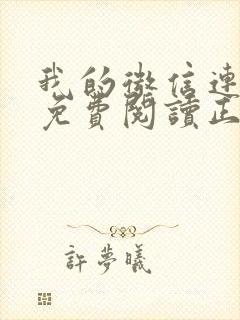 我的微信連
免費閱讀正
許夢曦